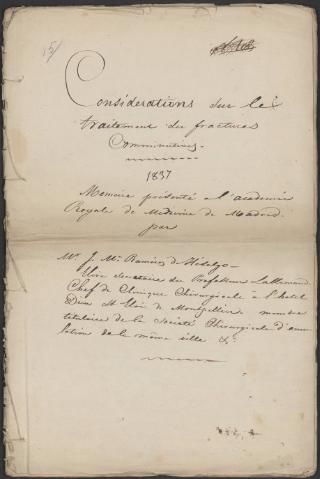 15/
Considerations sur le
traitement des fractures
Comminutives.
1837
Memoire présenté a l'academie
Royale de Medecine de Madrid
par
Mr. J. Mi. Ramirez de Hidalgo
secretaire du Professeur Lallemand
Chef de Clinique Chirurgicale à l'hotel
Dieu St Eloi de Montpellier membre
titulaire de la Société Chirurgicale d'ému
lation de la même ville &c